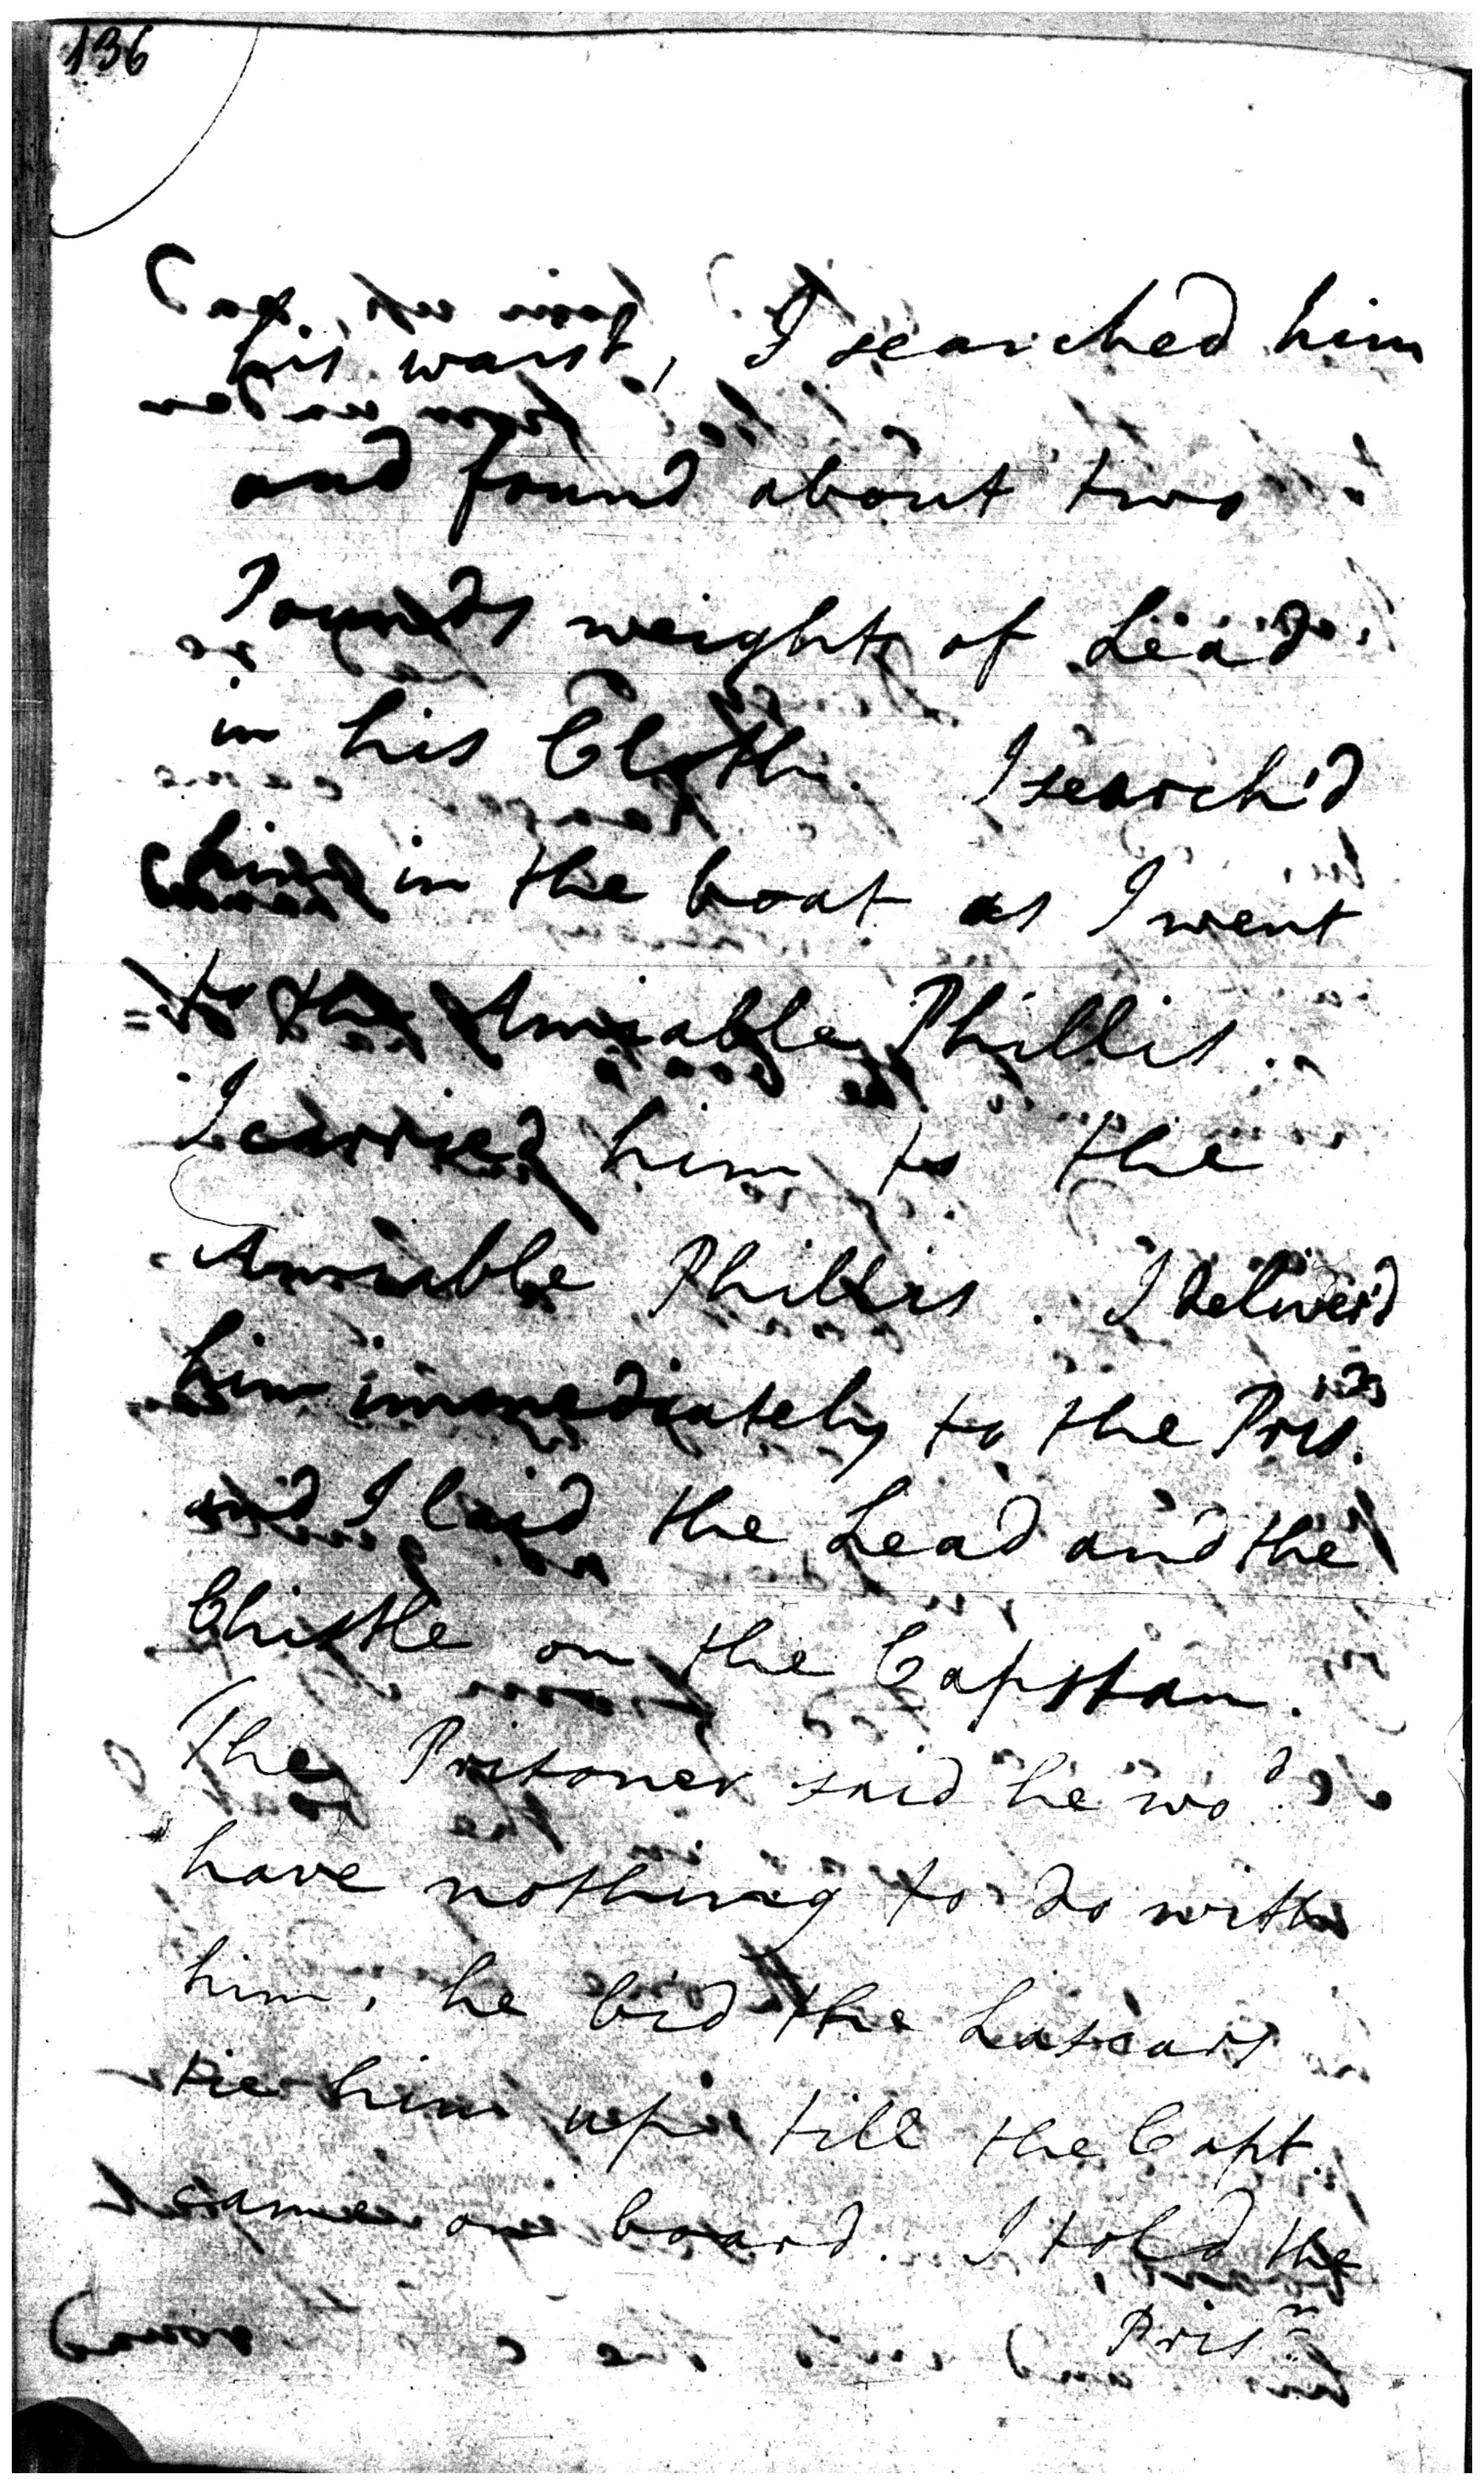 136
his waist, I searched him
and found about two
Pounds weight of Lead
in his Cloth. I search'd
him in the boat as I went
to the Amiable Phillis.
I carried him to the
Amiable Phillis. I deliver'd
him immediately to the
and I laid the Lead and the
Chistle on the Capstan.
The Prisoner said he wo.d
have nothing to do with
him, he bid the Lascars
tie him up till the Capt.
came on board. I told the
Pris.r